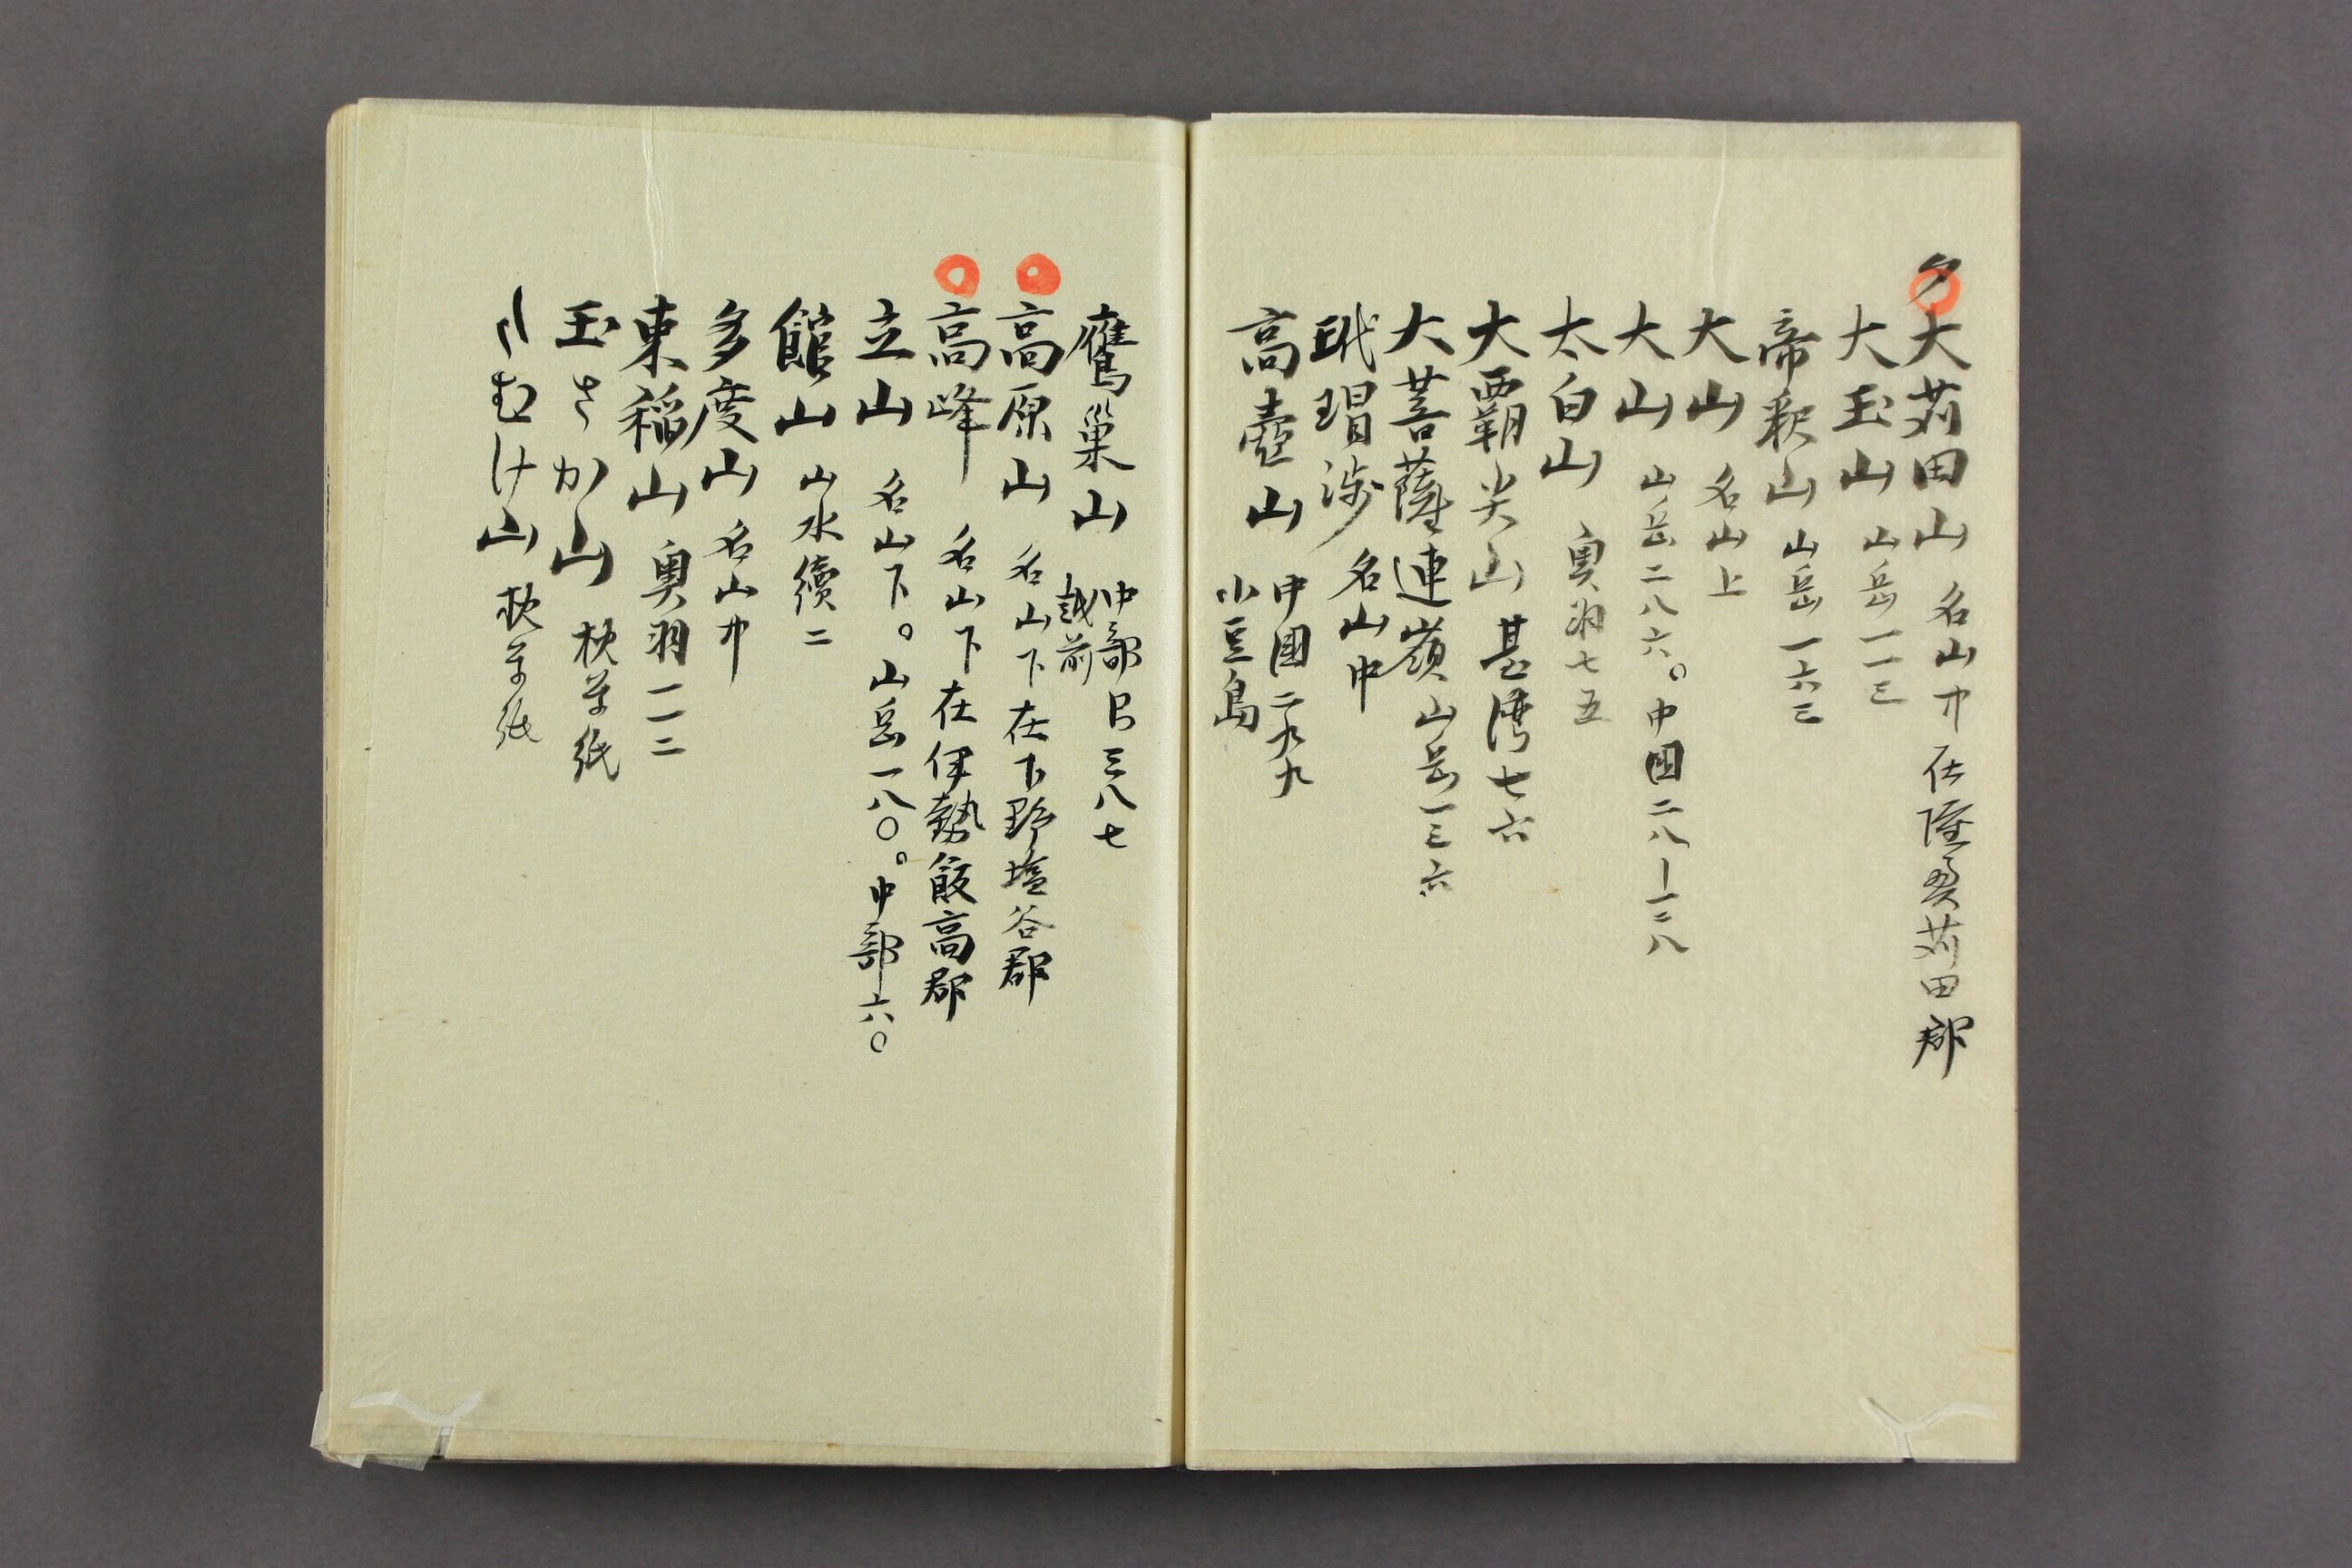 タ
大苅田山 名山中 在陸奥苅田郡
大玉山 山岳一一三
帝釈山 山岳一六三
大山 名山上
大山 山岳二八六。中国二八一三八
太白山 奥羽七五
大覇尖山 基湾七六
大菩薩連嶺 山岳一三六
玳瑁渉 名山中
高壺山 中國二九九
小豆島
鷹巣山 中部 三八七
越前
高原山 名山下 在下野塩谷郡
高峰 名山下 在伊勢飯高郡
立山 名山下。山岳一八〇。中部六〇
館山 山水續二
多度山 名山中
東稲山 奥羽一一二
玉さか山 枕草紙
たむけ山 枕草紙